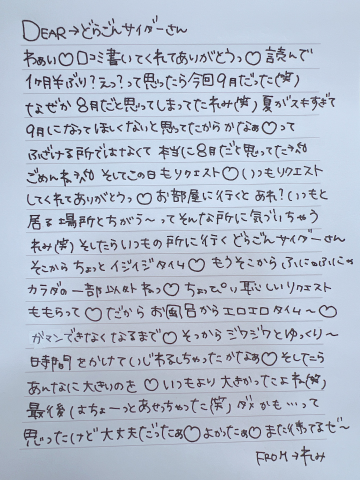 DEAR→どらごんサイダーさん
わぁい♡口コミ書いてくれてありがとうっ♡ 読んで
1ヶ月半ぶり?えっ?って思ったら今回9月だった(笑)
なぜか8月だと思ってしまってたれみ(笑) 夏がスキすぎて
9月になってほしくないと思ってたからかなぁ♡って
ふざける所ではなくて 本当に8月だと思ってた
ごめんね そしてこの日もリクエスト♡いつもリクエスト
してくれてありがとうっ♡ お部屋に行くと あれ?いつもと
居る場所とちがう〜ってそんな所に気づいちゃう
れみ(笑)そしたらいつもの所に行く どらごんサイダーさん
そこから ちょっとイジイジタイム♡ もうそこから ふにゅふにゅ
カラダの一部以外ねっ♡ ちょっぴり恥しいリクエスト
ももらって♡ だから お風呂からエロエロタイム〜♡
ガマンできなくなるまで♡ そっからジワジワとゆっくり〜
時間をかけていじわるしちゃったかなぁ♡ そしたら
あんなに大きいのを♡ いつもより大きかったよね(笑)
最後はちょーっとあせっちゃった(笑) ダメかも…って
思ったけど大丈夫だったぁ♡よかったぁ♡ また待ってるぜ〜
FROM→れみ